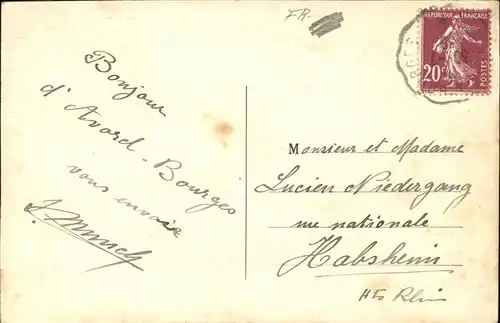 FR.
RÉPUBLIQUE FRANÇAISE
20c
POSTES
Bonjour
d'Avord - Bourges
vous envoie
Monsieur et Madame
Lucien Niedergang
rue nationale
Habsheim
Hto Rhin